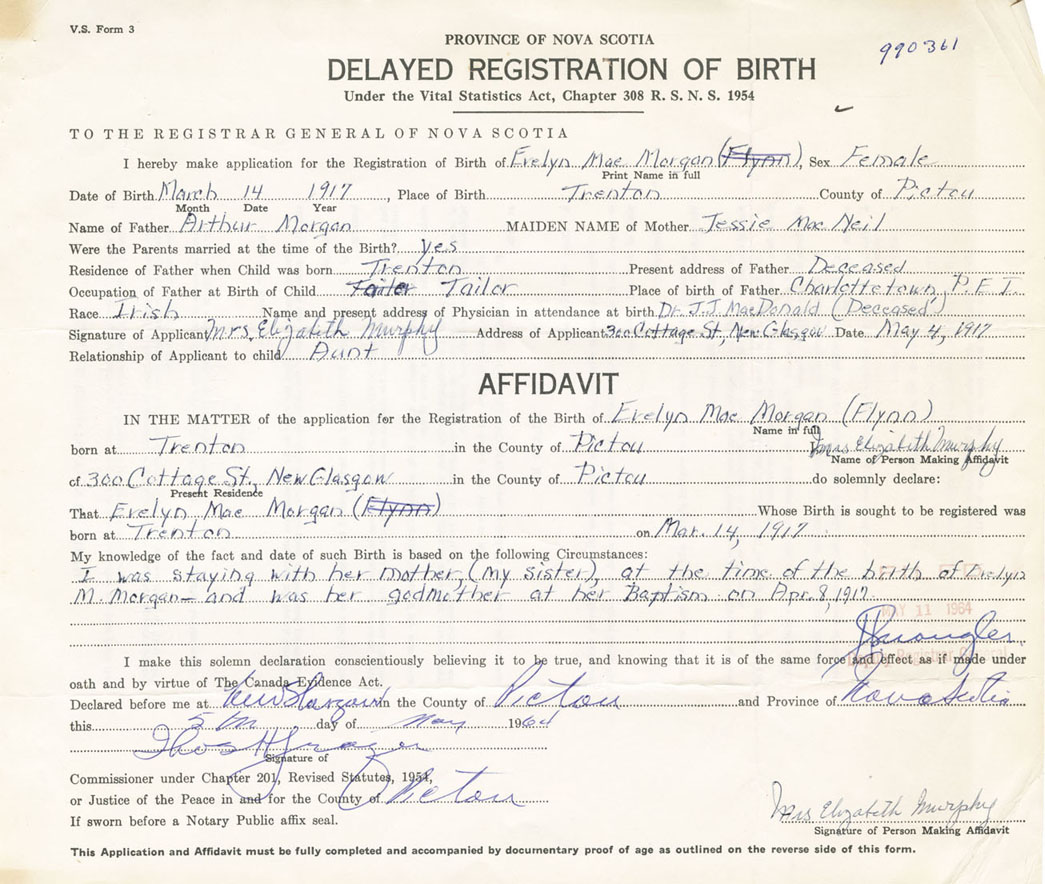 V.S. Form 3
990361
PROVINCE OF NOVA SCOTIA
DELAYED REGISTRATION OF BIRTH
Under the Vital Statistics Act, Chapter 308 R. S. N. S. 1954
TO THE REGISTRAR GENERAL OF NOVA SCOTIA
I hereby make application for the Registration of Birth of Evelyn Mae Morgan (Flynn), Sex Female
Print Name in full
Date of Birth March 14 1917, Place of Birth Trenton County of Pictou
Month Date Year
Name of Father Arthur Morgan MAIDEN NAME of Mother Jessie Mac Neil
Were the Parents married at the time of the Birth? yes
Residence of Father when Child was born Trenton Present address of Father Deceased
Occupation of Father at Birth of Child Tailor Tailor Place of birth of Father Charlottetown, P.E.I.
Race Irish Name and present address of Physician in attendance at birth Dr. J.J. MacDonald (Deceased)
Signature of Applicant Mrs. Elizabeth Murphy Address of Applicant 300 Cottage St, New Glasgow Date May 4, 1917
Relationship of Applicant to child Aunt
AFFIDAVIT
IN THE MATTER of the application for the Registration of the Birth of Evelyn Mae Morgan (Flynn)
Name in full
born at Trenton in the County of Pictou Mrs Elizabeth Murphy
Name of Person Making Affidavit
of 300 Cottage St, New Glasgow in the County of Pictou do solemnly declare:
Present Residence
That Evelyn Mae Morgan (Flynn) Whose Birth is sought to be registered was
born at Trenton on Mar. 14, 1917
My knowledge of the fact and date of such Birth is based on the following Circumstances:
I was staying with her mother, (my sister), at the time of the birth of Evelyn
M. Morgan - and was her godmother at her Baptism on Apr. 8, 1917.
MAY 11 1964
Deputy Registrar General
I make this solemn declaration conscientiously believing it to be true, and knowing that it is of the same force and effect as if made under
oath and by virtue of The Canada Evidence Act.
Declared before me at New Glasgow in the County of Pictou and Province of Nova Scotia
this 5th day of May 1964
Signature of
Commissioner under Chapter 201, Revised Statutes, 1954,
or Justice of the Peace in and for the County of Pictou
If sworn before a Notary Public affix seal.
Mrs Elizabeth Murphy
Signature of Person Making Affidavit
This Application and Affidavit must be fully completed and accompanied by documentary proof of age as outlined on the reverse side of this form.